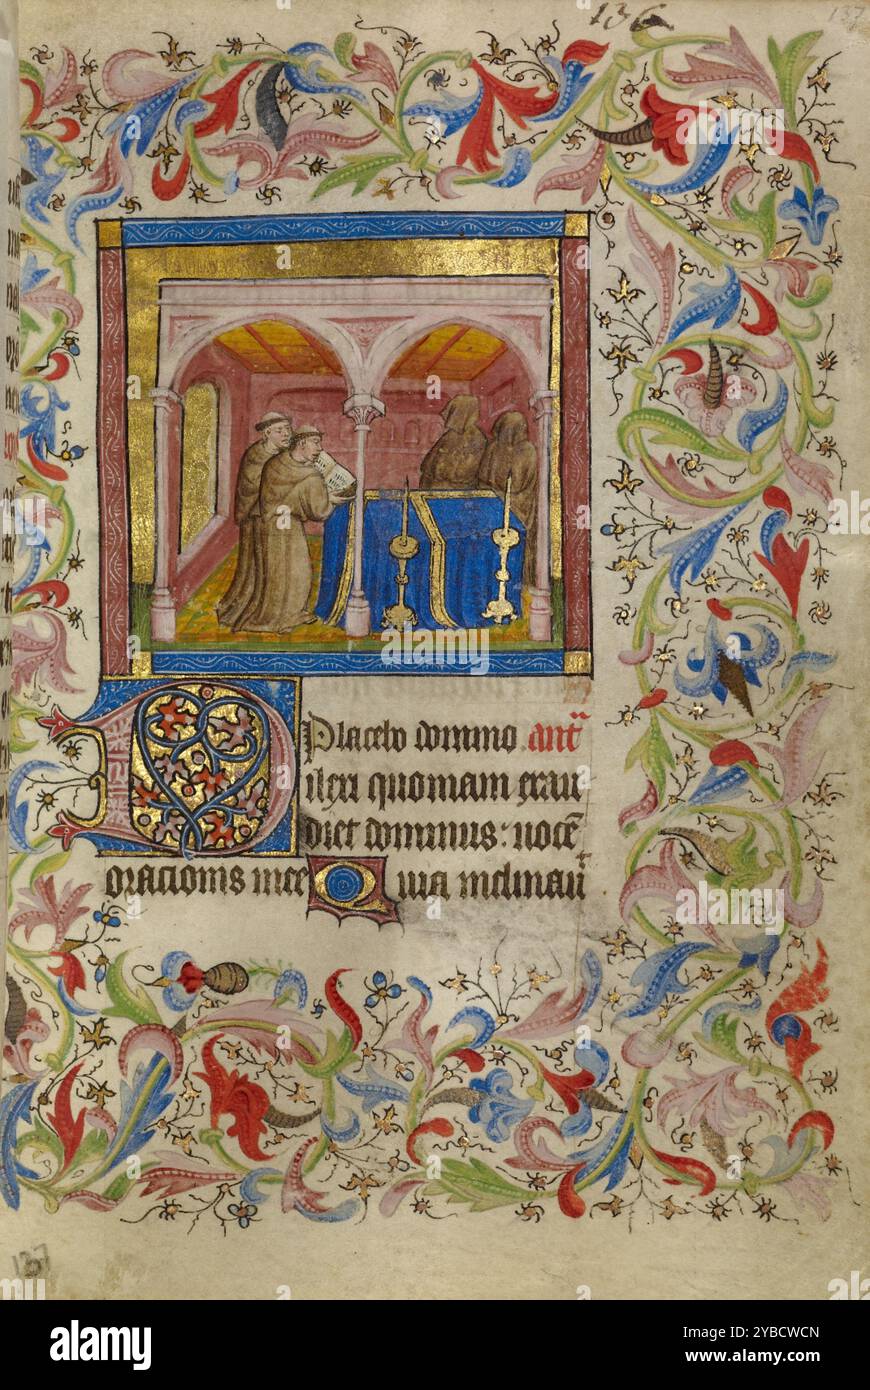 136
137
Placebo domino ant
ilexi quoniam exau
diet dominus: uocē
orationis mee Quia inclinauit
137
alamy
Image ID: 2YBCWCN
www.alamy.com